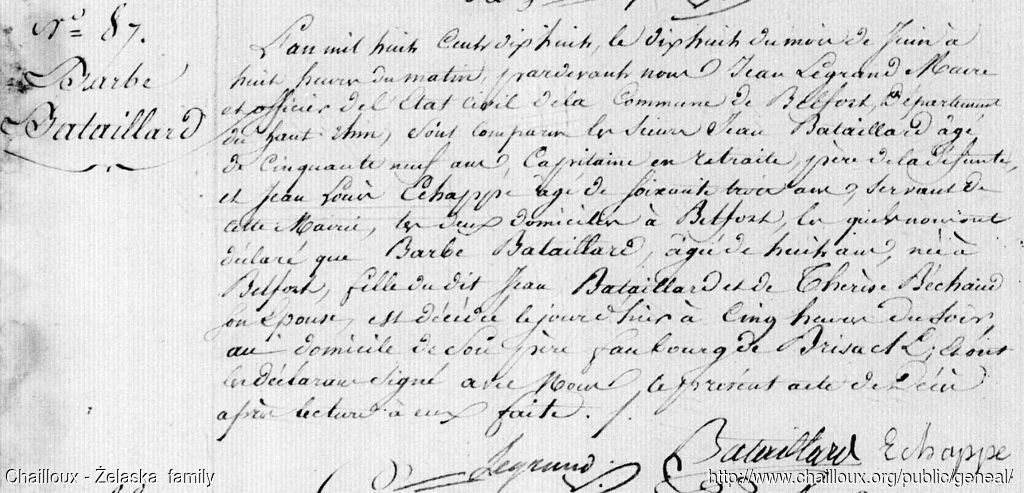 N° 87.
Barbe
Bataillard
L'an mil huit Cent dix huit, le dix huit du mois de Juin à
huit heures du matin, pardevant nous Jean Legrand Maire
et officier de l'Etat Civil de la Commune de Belfort, Département
du haut Rhin, sont comparus les sieurs Jean Bataillard âgé
de Cinquante neuf ans, Capitaine en retraite, père de la Défunte,
et Jean Louis Echappé âgé de soixante trois ans, servant de
cette Mairie, les deux domiciliés à Belfort, les quels nous ont
déclaré que Barbe Bataillard, âgée de huit ans, née à
Belfort, fille du dit Jean Bataillard et de Thérèse Béchaud
son Epouse, est décédée le jour d'hier à Cinq heures du soir,
au domicile de son père faubourg de Brisack; Et ont
les déclarans signé avec Nous, le présent acte de Décès
après lecture à eux faite.
Legrand Bataillard Echappe
Chailloux - Żelaska family
http://www.chailloux.org/public/geneal/